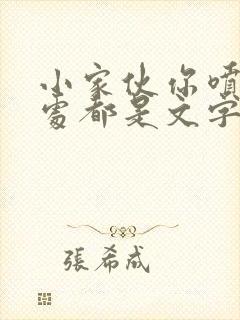 小家伙你噴
處都是文字
張希成